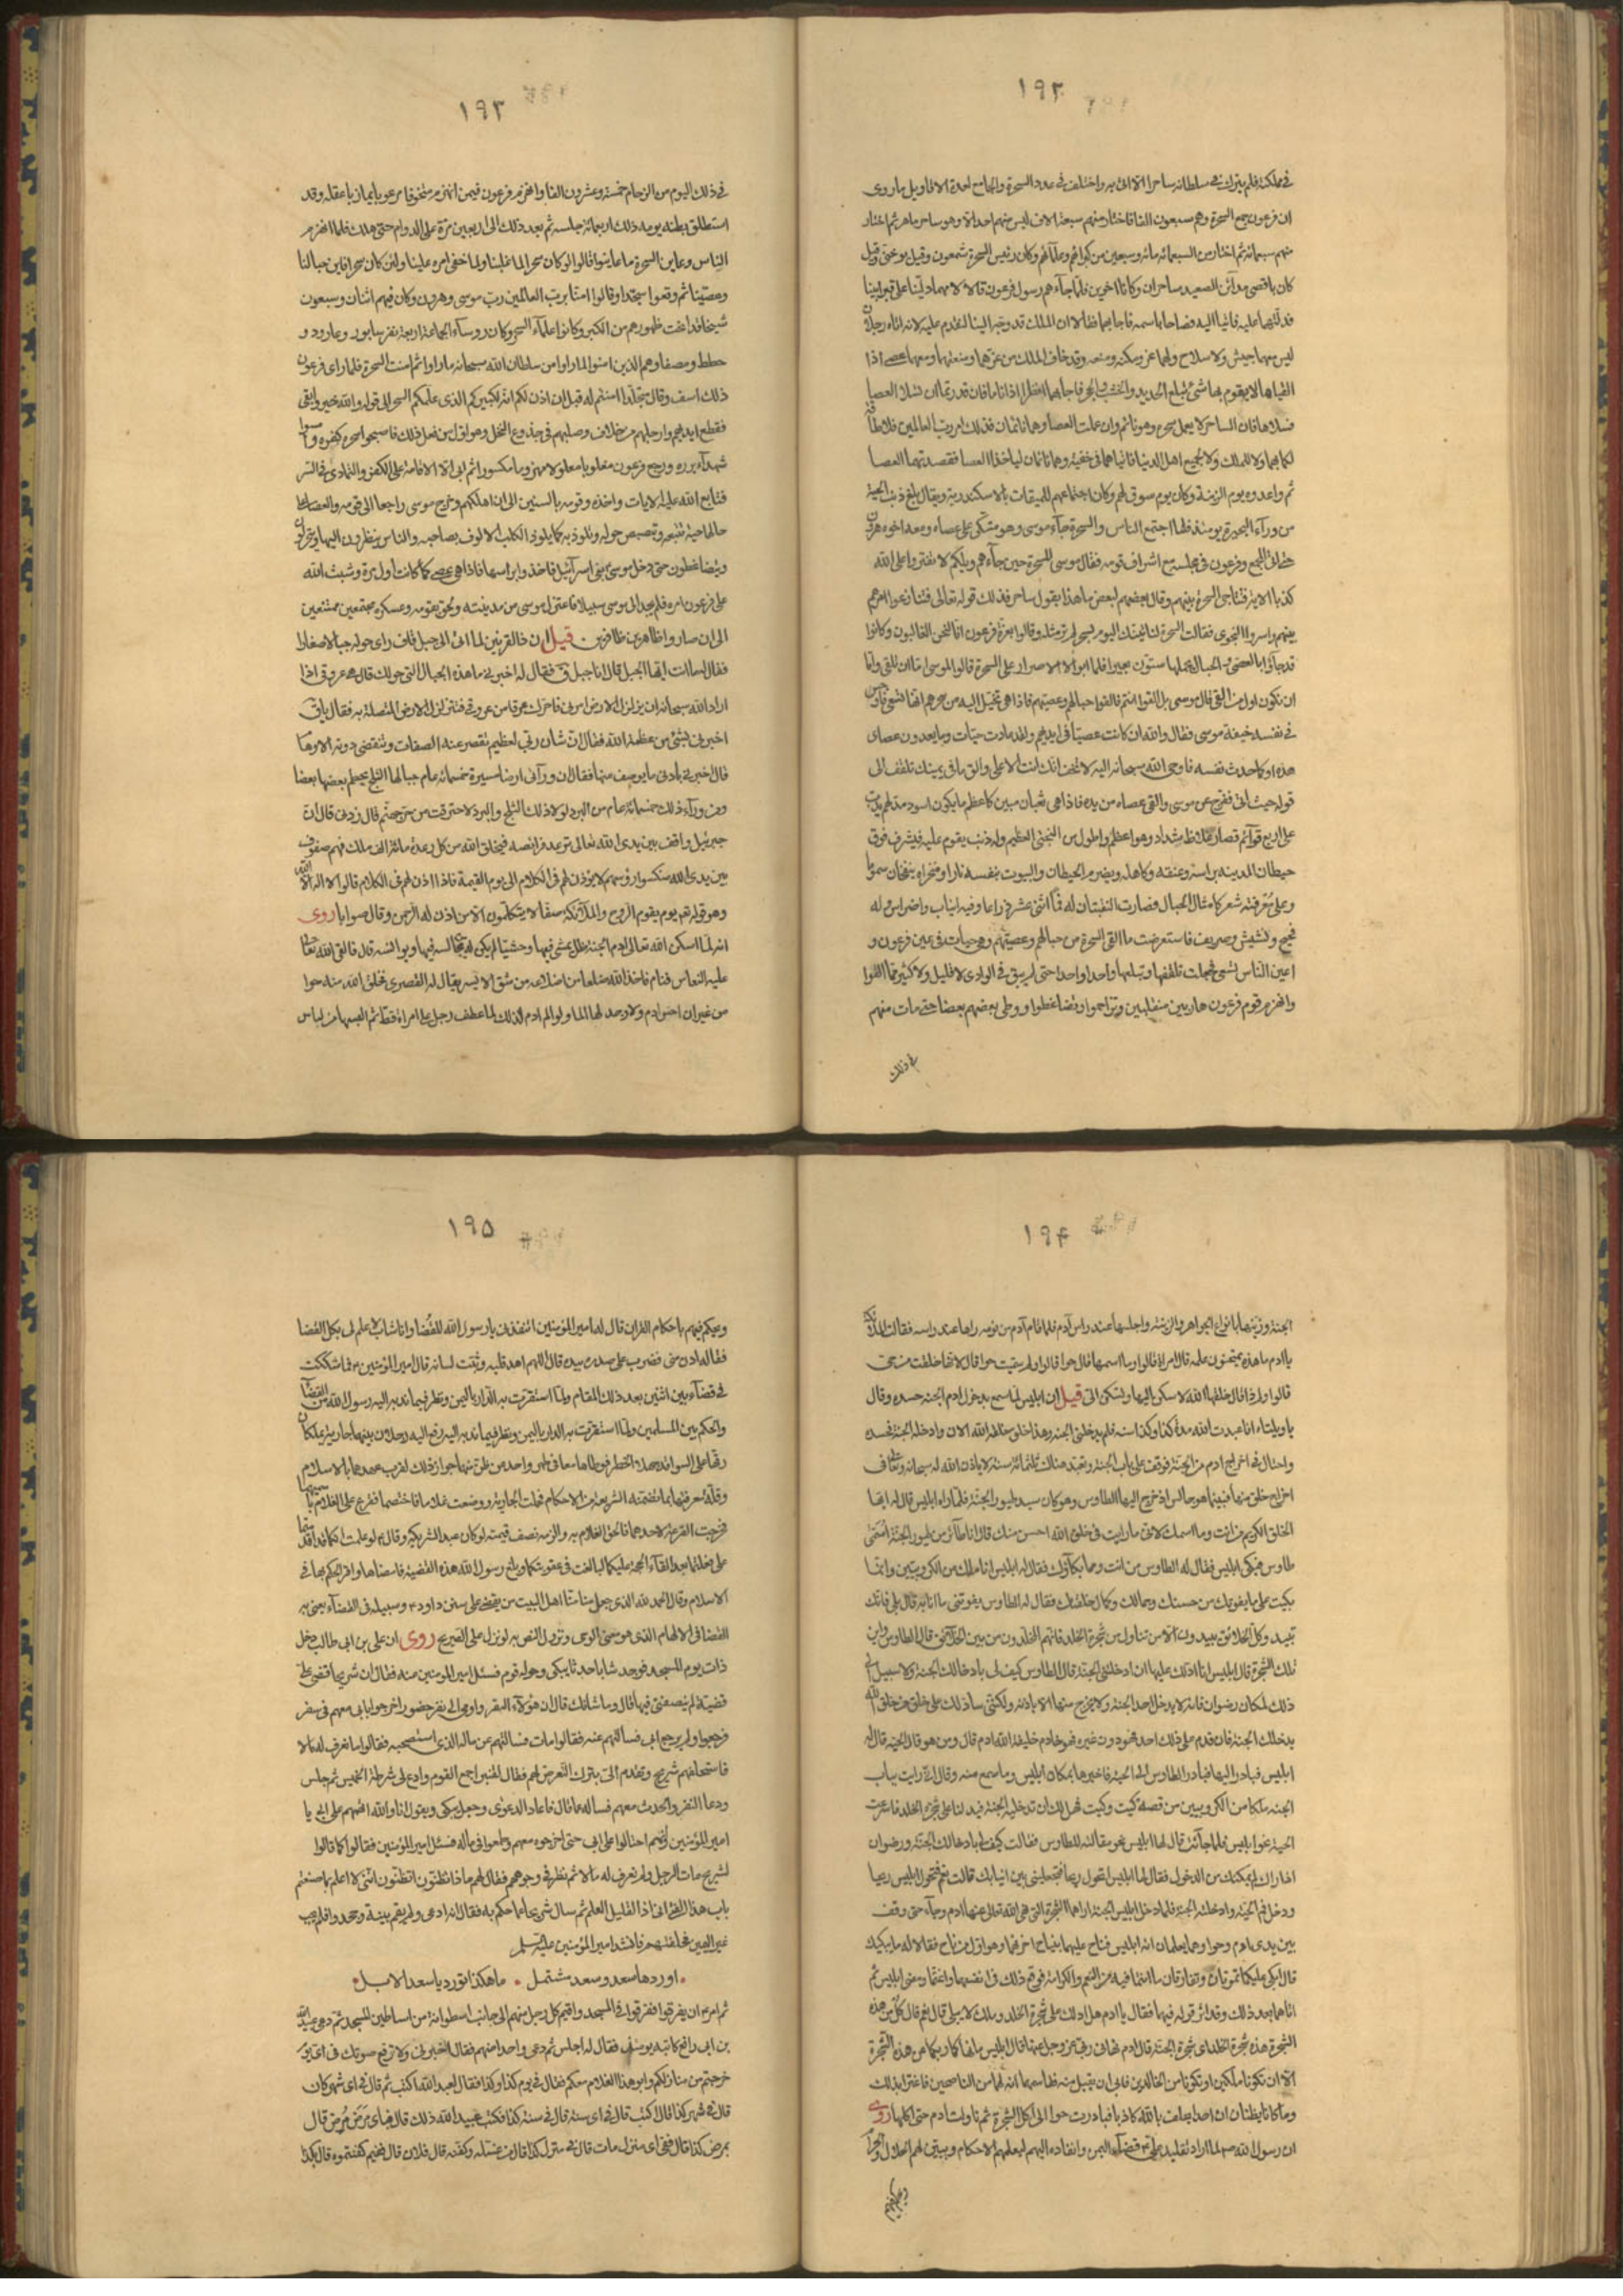 ١٩٢
في مملكته فلم يترك في سلطانه ساحرا الا اتى به واختلف في عدد السحرة والجامع لعدة الاقاويل ما روى
ان فرعون جمع السحرة وهم سبعون الفا فاختار منهم سبعة الاف ليس منهم احد الا وهو ساحر ماهر ثم اختار
منهم سبعمائة ثم اختار من السبعمائة مائة وسبعين من كبرائهم وعلمائهم وكان رئيس السحرة شمعون وقيل يوحنى وقيل
كان باقصى مدائن الصعيد ساحران وكانا اخوين فلما جاءهم رسول فرعون قالا لامهما دلينا على قبر ابينا
فدلتهما عليه فاتيا اليه فصاحا باسمه فاجابهما فقالا ان الملك قد وجه الينا لنقدم عليه لانه اتاه رجلان
ليس معهما جيش ولا سلاح ولهما عز ومكنة ومنعه وقد خاف الملك من عزهما ومنعتهما ومعهما عصى اذا
القياها لا يقوم بها شئ تبلع الحديد والخشب والحجر فاجابهما انظرا اذا ناما فان قدرتما ان تسلا العصا
فسلاها فان الساحر لا يعمل سحره وهو نائم وان عملت العصا وهما نائمان فذلك امر رب العالمين فلا طاقة
لكما بهما ولا للملك ولا لجميع اهل الدنيا فاتياهما في خفية وهما نائمان لياخذا العصا فقصدتهما العصا
ثم واعدوه يوم الزينة وكان يوم سوق لهم وكان اجتماعهم للميقات بالاسكندرية ويقال بلغ ذنب الحية
من وراء البحيرة يومئذ فلما اجتمع الناس والسحرة جاء موسى وهو متكى على عصاه ومعه اخوه هرون
حتى اتى الجمع وفرعون في مجلسه مع اشراف قومه فقال موسى للسحرة حين جاءهم ويلكم لا تفتروا على الله
كذبا الاية فتناجى السحرة بينهم وقال بعضهم لبعض ما هذا بقول ساحر فذلك قوله تعالى فتنازعوا امرهم
بينهم واسروا النجوى فقالت السحرة لناتينك اليوم بسحر لم تر مثله وقالوا بعزة فرعون انا لنحن الغالبون وكانوا
قد جاؤا بالعصي والحبال تحملها ستون بعيرا فلما ابوا الا الاصرار على السحرة قالوا لموسى اما ان تلقى واما
ان نكون اول من القى قال موسى بل القوا انتم فالقوا حبالهم وعصيهم فاذا هي تخيل اليه من سحرهم انها تسعى فاوجس
في نفسه خيفة موسى فقال والله ان كانت عصيا في ايديهم ولقد عادت حيات وما يعدون عصاى
هذه او كما حدث نفسه فاوحى الله سبحانه اليه لا تخف انك انت الاعلى والق ما في يمينك تلقف الى
قوله حيث اتى ففرج عن موسى والقى عصاه من يده فاذا هي ثعبان مبين كاعظم ما يكون اسود مدلهم يدب
على اربع قوائم قصار غلاظ شداد وهو اعظم واطول من البختي العظيم وله ذنب يقوم عليه فيشرف فوق
حيطان المدينة براسه وعنقه وكاهله ويضرم الحيطان والبيوت بنفسه نارا ومنخراه ينفخان سموما
وعلى معرفته شعر كامثال الحبال فصارت الشعبتان له فما اثنى عشر ذراعا وفيه انياب واضراس وله
فحيح وكشيش وصريف فاستعرضت ما القى السحرة من حبالهم وعصيهم وهي حيات في عين فرعون و
اعين الناس تسعى فجعلت تلقفها وتبلعها واحدا واحدا حتى لم يبق في الوادى لا قليل ولا كثير مما القوا
وانهزم قوم فرعون هاربين منقلبين وتزاحموا وتضاغطوا ووطى بعضهم بعضا حتى مات منهم
في ذلك
١٩٣
في ذلك اليوم من الزحام خمسة وعشرون الفا وانهزم فرعون فيمن انهزم منخوفا مرعوبا عازبا عقله وقد
استطلق بطنه يومه ذلك اربعمائة جلسه ثم بعد ذلك الى اربعين مرة على الدوام حتى هلك فلما انهزم
الناس وعاين السحرة ما عاينوا قالوا لو كان سحرا لما غلبنا ولما خفى امره علينا ولئن كان سحرا فاين حبالنا
وعصينا ثم وقعوا سجدا وقالوا امنا برب العالمين رب موسى وهرون وكان فيهم اثنان وسبعون
شيخا قد انحنت ظهورهم من الكبر وكانوا علماء السحر وكان روساء الجماعة اربعة نفر سابور وعارود و
حطط ومصفا وهم الذين امنوا لما راوا من سلطان الله سبحانه ما راوا ثم امنت السحرة فلما راى فرعون
ذلك اسف وقال متجلدا امنتم له قبل ان اذن لكم انه لكبيركم الذى علمكم السحر الى قوله والله خير وابقى
فقطع ايديهم وارجلهم من خلاف وصلبهم في جذوع النخل وهو اول من فعل ذلك فاصبحوا سحره كفره وامسوا
شهداء برره ورجع فرعون مغلوبا معلولا مهزوما مكسورا ثم ابى الا الاقامة على الكفر والتمادى في الشر
فتابع الله عليه الايات واخذه وقومه بالسنين الى ان اهلكهم وخرج موسى راجعا الى قومه والعصا على
حالها حية تتبعه وتبصبص حوله وتلوذ به كما يلوذ الكلب الالوف بصاحبه والناس ينظرون اليها
ويتضاغطون حتى دخل موسى بنى اسرائيل فاخذ براسها فاذا هي عصى كما كانت اول مرة وشتت الله
على فرعون امره فلم يجد الى موسى سبيلا فاعتزل موسى من مدينته ولحق بقومه وعسكره مجتمعين ممتنعين
الى ان صاروا ظاهرين ظافرين قيل ان ذا القرنين لما اتى الى جبل قاف راى حوله جبالا صغارا
فقال لها انت ايها الجبل قال انا جبل ق فقال له اخبرني ما هذه الجبال التي حولك قال هي عروقي اذا
اراد الله سبحانه ان يزلزل الارض امرني فاحرك عرقا من عروقي فتتزلزل الارض المتصلة به فقال يا ق
اخبرني بشئ من عظمة الله فقال ان شان ربي لعظيم تقصر عنه الصفات وتنقضى دونه الاوهام
قال اخبرني بادنى ما يوصف منها فقال ان ورائى ارضا مسيرة خمسمائة عام جبالها الثلج يحطم بعضها بعضا
ومن وراء ذلك خمسمائة عام من البرد لولا ذلك الثلج والبرد لاحترقت من حر جهنم قال زدني قال ان
جبرئيل واقف بين يدى الله تعالى ترعد فرائصه فيخلق الله من كل رعدة مائة الف ملك فهم صفوف
بين يدى الله منكسوا رؤسهم لا يؤذن لهم في الكلام الى يوم القيمة فاذا اذن لهم في الكلام قالوا لا اله الا الله
وهو قوله تعم يوم يقوم الروح والملائكة صفا لا يتكلمون الا من اذن له الرحمن وقال صوابا روى
انه لما اسكن الله تعالى ادم الجنة ظل يمشى فيها وحشيا لم يكن له من يجالسه فيها ويوانسه قال فالقى الله تعالى
عليه النعاس فنام فاخذ الله ضلعا من اضلاعه من شق الايسر يقال له القصرى فخلق الله منه حوا
من غير ان احس ادم ولا وجد لها الما ولو الم ادم لذلك لما عطف رجل على امراة قط ثم البسها من لباس
١٩٤
الجنة وزينها بانواع الجواهر والزينة واجلسها عند راس آدم فلما قام آدم من نومه راها عند راسه فقالت الملائكة
يا ادم ما هذه يمتحنون علمه قال امراة قالوا وما اسمها قال حوا قالوا ولم سميت حوا قال لانها خلقت من حى
قالوا ولم ذا قال خلقها الله لاسكن اليها وتسكن الى قيل ان ابليس لما سمع بدخول ادم الجنه حسده وقال
يا ويلتاه انا عبدت الله مدة كذا وكذا سنة فلم يدخلني الجنه وهذا خلق خلقه الله الان وادخله الجنة فحسده
واحتال في اخراج ادم من الجنة فوقف على باب الجنة وتعبد هناك ثلثمائة سنة لا ياذن الله له سبحانه وتعالى في
اخراج خلق منها فبينما هو جالس اذ خرج اليها الطاوس وهو كان سيد طيور الجنة فلما راه ابليس قال له ايها
الخلق الكريم من انت وما اسمك لاني ما رايت في خلق الله احسن منك قال انا طائر من طيور الجنة اسمى
طاوس فبكى ابليس فقال له الطاوس من انت ومما بكاؤك فقال له ابليس انا ملك من الكروبيين وانما
بكيت على ما يفوتك من حسنك وجمالك وكمال خلقتك فقال له الطاوس يفوتنى ما انا به قال بلى فانك
تبيد وكل الخلائق يبيدون الا من تناول من شجرة الخلد فانهم المخلدون من بين الخلائق قال الطاوس واين
تلك الشجرة قال ابليس انا ادلك عليها ان ادخلتنى الجنة قال الطاوس كيف لى بادخالك الجنة ولا سبيل الى
ذلك لمكان رضوان فانه لا يدخل احد الجنة ولا يخرج منها الا باذنه ولكنى سادلك على خلق من خلق الله
يدخلك الجنة فان قدم على ذلك احد فهو دون غيره فهو خادم خليفة الله ادم قال ومن هو قال الحية قال له
ابليس فبادر اليها فبادر الطاوس الى الحية فاخبرها بمكان ابليس وما سمع منه وقال اني رايت بباب
الجنه ملكا من الكروبيين من قصته كيت وكيت فهل لك ان تدخليه الجنة فيدلنا على شجرة الخلد فاسرعت
الحية نحو ابليس فلما جائته قال لها ابليس نحو مقالته للطاوس فقالت كيف لى بادخالك الجنة ورضوان
اذا راك لم يمكنك من الدخول فقال لها ابليس اتحول ريحا فتجعلينى بين انيابك قالت نعم فتحول ابليس ريحا
ودخل فم الحية وادخلته الجنة فلما دخل ابليس الجنة اراها الشجرة التي نهى الله تعالى عنها ادم وجاء حتى وقف
بين يدى ادم وحوا وهما يعلمان انه ابليس فناح عليهما بنياح احزنهما وهو اول من ناح فقالا له ما يبكيك
قال ابكي عليكما تموتان وتفارقان ما انتما فيه من النعيم والكرامة فوقع ذلك في انفسهما واغتما ومضى ابليس ثم
اتاهما بعد ذلك وقد اثر قوله فيهما فقال يا ادم هل ادلك على شجرة الخلد وملك لا يبلى قال نعم قال كل من هذه
الشجرة هذه شجرة الخلد اى شجرة الجنة قال ادم نهانى ربي عز وجل عنها قال ابليس ما نهاكما ربكما من هذه الشجرة
الا ان تكونا ملكين او تكونا من الخالدين فابى ان يقبل منه فقاسمهما انه لهما من الناصحين فاغترا بذلك
وما كانا يظنان ان احدا يحلف بالله كاذبا فبادرت حوا الى اكل الشجرة ثم ناولت ادم حتى اكلها روى
ان رسول الله ص لما اراد تقليد على ع قضاء اليمن وانفاذه اليهم ليعلمهم الاحكام ويبين لهم الحلال والحرام
ويحكم فيهم
١٩٥
ويحكم فيهم باحكام القران قال له امير المؤمنين انتفذنى يا رسول الله للقضا وانا شاب لا علم لى بكل القضا
فقال له ادن منى فضرب على صدره بيده قال اللهم اهد قلبه وثبت لسانه قال امير المؤمنين ع فما شككت
في قضاء بين اثنين بعد ذلك المقام ولما استقرت به الدار باليمن ونظر فيما ندبه اليه رسول الله ص من القضاء
والحكم بين المسلمين ولما استقرت به الدار باليمن ونظر فيما ندبه اليه رفع اليه رجلان بينهما جارية يملكان
رقها على السواء قد جهلا خطر وطئها معا فوطياها في طهر واحد من ظن منهما جواز ذلك لقرب عهدهما بالاسلام
وقلة معرفتهما بما تضمنته الشريعة من الاحكام فحملت الجارية ووضعت غلاما فاختصما فقرع على الغلام باسمهما
فخرجت القرعة لاحدهما فالحق الغلام به والزمه نصف قيمته لو كان عبدا لشريكه وقال ع لو علمت انكما قد اقدمتما
على ما فعلتما بعد القاء الحجة عليكما لبالغت في عقوبتكما وبلغ رسول الله هذه القضية فامضاها واقر الحكم بها في
الاسلام وقال الحمد لله الذى جعل منا اهل البيت من يقضى على سنن داود ع وسبيله في القضاء يعنى به
القضا في الالهام الذى هو معنى الوحى ونزول النص به لو نزل على الصريح روى ان على بن ابى طالب دخل
ذات يوم المسجد فوجد شابا حدثا يبكى وحوله قوم فسئل امير المؤمنين عنه فقال ان شريحا قضى على
قضية لم ينصفنى فيها قال وما شانك قال ان هؤلاء النفر واومى الى نفر حضور اخرجوا بابى معهم في سفر
فرجعوا ولم يرجع ابى فسالتهم عنه فقالوا مات فسالتهم عن ماله الذى استصحبه فقالوا ما نعرف له مالا
فاستحلفهم شريح وتقدم الى بترك التعرض لهم فقال لقنبر اجمع القوم وادع لى شرطة الخميس ثم جلس
ودعا النفر والحدث معهم فساله عما قال فاعاد الدعوى وجعل يبكى ويقول انا والله اتهمهم على ابى يا
امير المؤمنين فانهم احتالوا على ابى حتى اخرجوه معهم وطمعوا في ماله فسئل امير المؤمنين فقالوا كما قالوا
لشريح مات الرجل ولم نعرف له مالا ثم نظر في وجوههم فقال لهم ماذا تظنون اتظنون اننى لا اعلم ما صنعتم
باب هذا الفتى انى اذا لقليل العلم ثم سال شريحا عما حكم به فقال انه ادعى ولم يقم بينة وجحدوا فلم يجب
غير اليمين فحلفتهم فانشد امير المؤمنين عليه السلم
اوردها سعد وسعد مشتمل • ما هكذا تورد يا سعد الابل
ثم امر بهم ان يفرقوا ففرقوا في المسجد واقيم كل رجل منهم الى جانب اسطوانة من اساطين المسجد ثم دعى عبيد الله
بن ابى رافع كاتبه يومئذ فقال له اجلس ثم دعى واحدا منهم فقال اخبرنى ولا ترفع صوتك في اى يوم
خرجتم من منازلكم وابو هذا الغلام معكم فقال في يوم كذا وكذا فقال لعبيد الله اكتب ثم قال في اى شهر كان
قال في شهر كذا قال اكتب قال في اى سنة قال في سنة كذا فكتب عبيد الله ذلك قال فباى مرض مرض قال
بمرض كذا قال ففى اى منزل مات قال في منزل كذا قال من غسله وكفنه قال فلان قال فبم كفنتموه قال بكذا